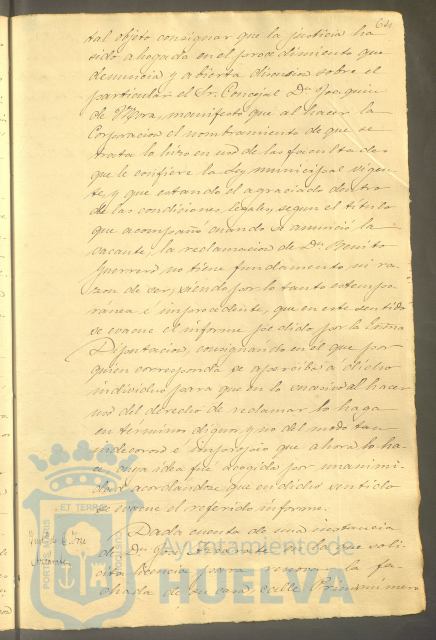 64
tal objeto consignar que la justicia ha
sido ahogada en el procedimiento que
denuncia y abierta discusion sobre el
particular el Sr. Concejal Dn. Joaquin
de Mora, manifestó que al hacer la
Corporacion el nombramiento de que se
trata lo hizo en uso de las facultades
que le confiere la Ley municipal vigen-
te, y que estando el agraciado dentro
de las condiciones legales, segun el título
que acompañó cuando se anunció la
vacante, la reclamacion de Dn. Benito
Guerrero no tiene fundamento ni ra-
zon de ser, siendo por lo tanto estempo-
ránea é improcedente, que en este sentido
se evacue el informe pedido por la Excma
Diputacion, consignando en él que por
quien corresponda se aperciba á dicho
individuo para que en lo sucesivo al hacer
uso del derecho de reclamar lo haga
en términos dignos y no del modo tan
indecoroso é impropio que ahora lo ha-
ce cuya idea fué acogida por unanimi-
dad acordándose que en dicho sentido
se evacue el referido informe.
Dada cuenta de una instancia
de Dn. en la que soli-
cita licencia para renovar la fa-
chada de su casa calle número
PORTUS MARIS
ET TERRÆ
CUSTODIA
Ayuntamiento de
HUELVA